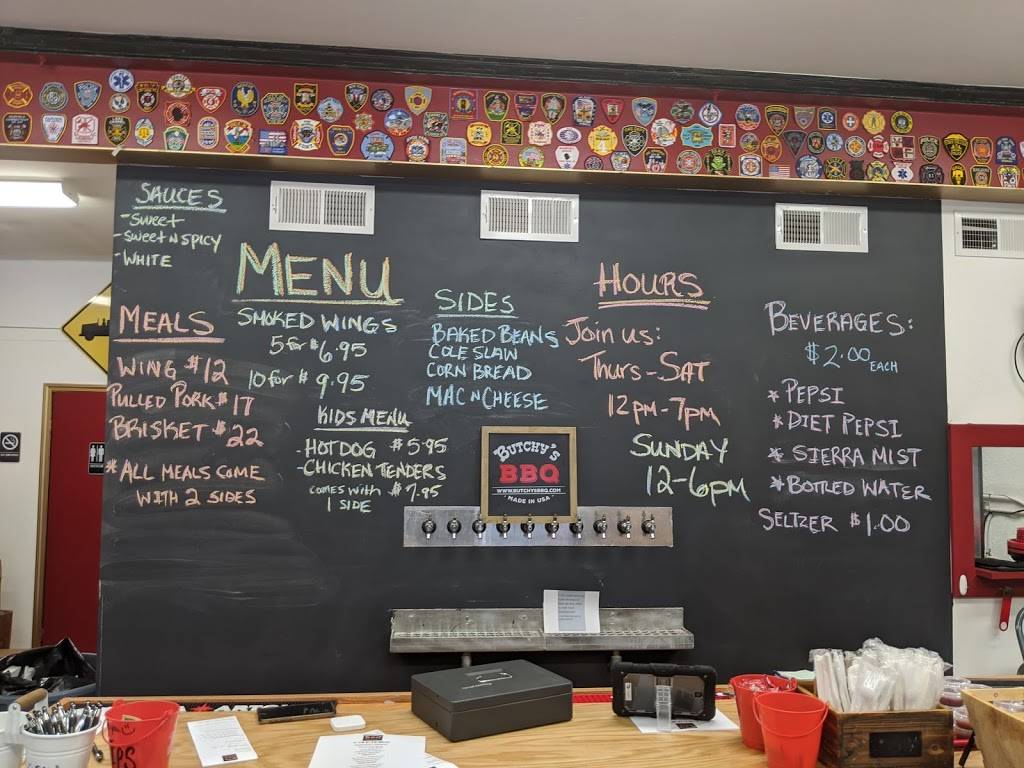 SAUCES
- Sweet
- Sweet N Spicy
- WHITE
MENU
MEALS
WING $12
PULLED PORK $17
BRISKET $22
* ALL MEALS COME
WITH 2 SIDES
SMOKED WINGS
5 for $6.95
10 for $9.95
KIDS MENU
- HOTDOG $5.95
- CHICKEN TENDERS
COMES WITH $7.95
1 SIDE
SIDES
BAKED BEANS
COLE SLAW
CORN BREAD
MAC N CHEESE
BUTCHY'S
BBQ
WWW.BUTCHYSBBQ.COM
MADE IN USA
HOURS
Join us:
Thurs - SAT
12PM - 7PM
SUNDAY
12-6PM
BEVERAGES:
$2.00 EACH
* PEPSI
* DIET PEPSI
* SIERRA MIST
* BOTTLED WATER
SELTZER $1.00